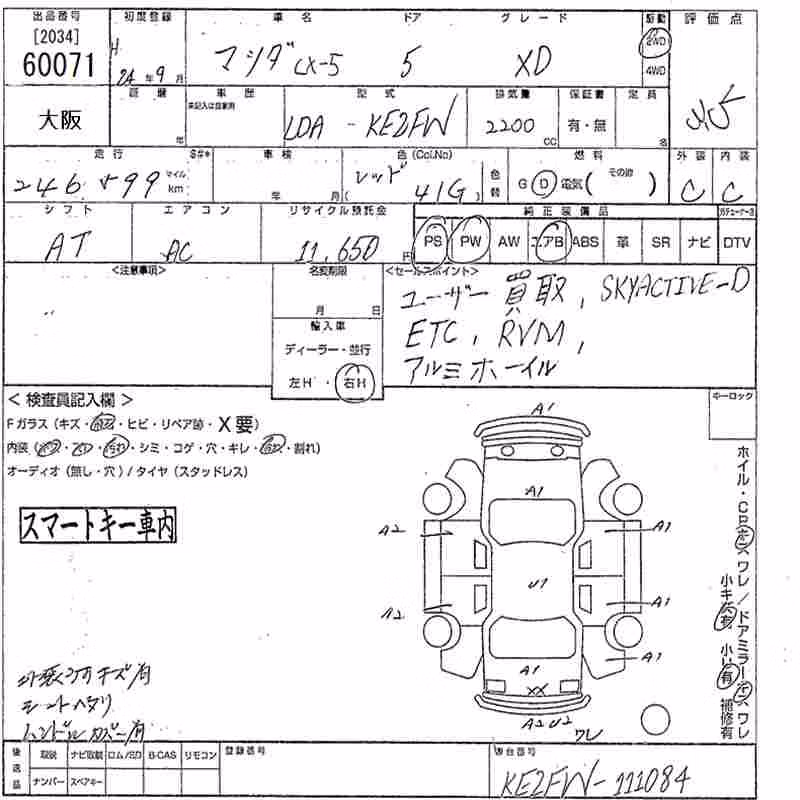 出品番号 初度登録 車名 ドア グレード 駆動 評価点
[2034]
60071 H 24年9月 マツダ CX-5 5 XD 2WD 4WD
大阪 年 車歴 型式 排気量 保証書 定員
未記入は自家用
LDA - KE2FW 2200 CC 有・無 名
走行 車検 色(Col.No) 燃料 外装 内装
マイル km 年 月 レッド ( 41G ) 色替 G D 電気 ( その他 ) C C
シフト エアコン リサイクル預託金 純正装備品
AT AC 11,650 円 PS PW AW エアB ABS 革 SR ナビ DTV
<注意事項> 名変期限 <セールスポイント>
月 日
ユーザー買取, SKYACTIVE-D
輸入車
ETC, RVM,
ディーラー・並行
アルミホイール
左H・右H
< 検査員記入欄 > キーロック
Fガラス (キズ・ ・ヒビ・リペア跡・X要)
内装 ( ・ ・ ・シミ・コゲ・穴・キレ・ ・割れ)
オーディオ (無し・穴) / タイヤ (スタッドレス)
スマートキー車内
A1
A1
A2 A1
U1
A2 A1
A1
A1
XX
A2 U2
ワレ
外装 キズ有
シートヘタリ
ハンドルカバー有
後送品 取説 ナビ取説 ロム/SD B-CAS リモコン 登録番号 車台番号
ナンバー スペアキー KE2FW-111084